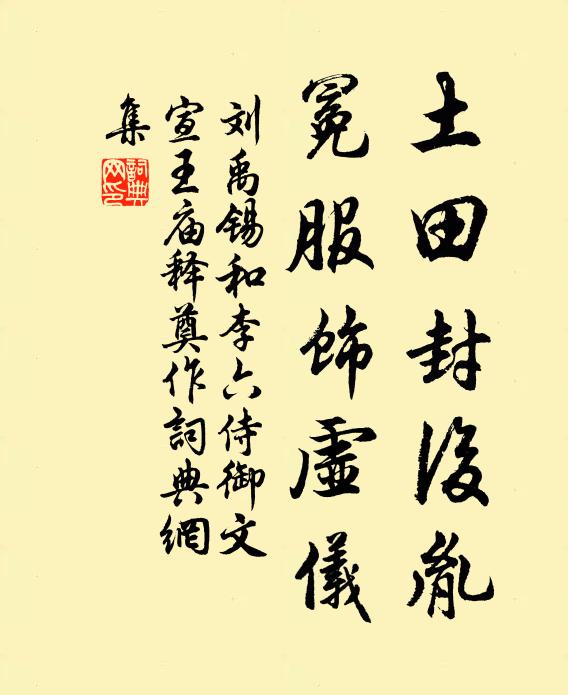 土田封后胤
冕服饰虚儀
刘禹锡和李六侍御文
宣王庙释奠作詞典網
集
詞典
网印